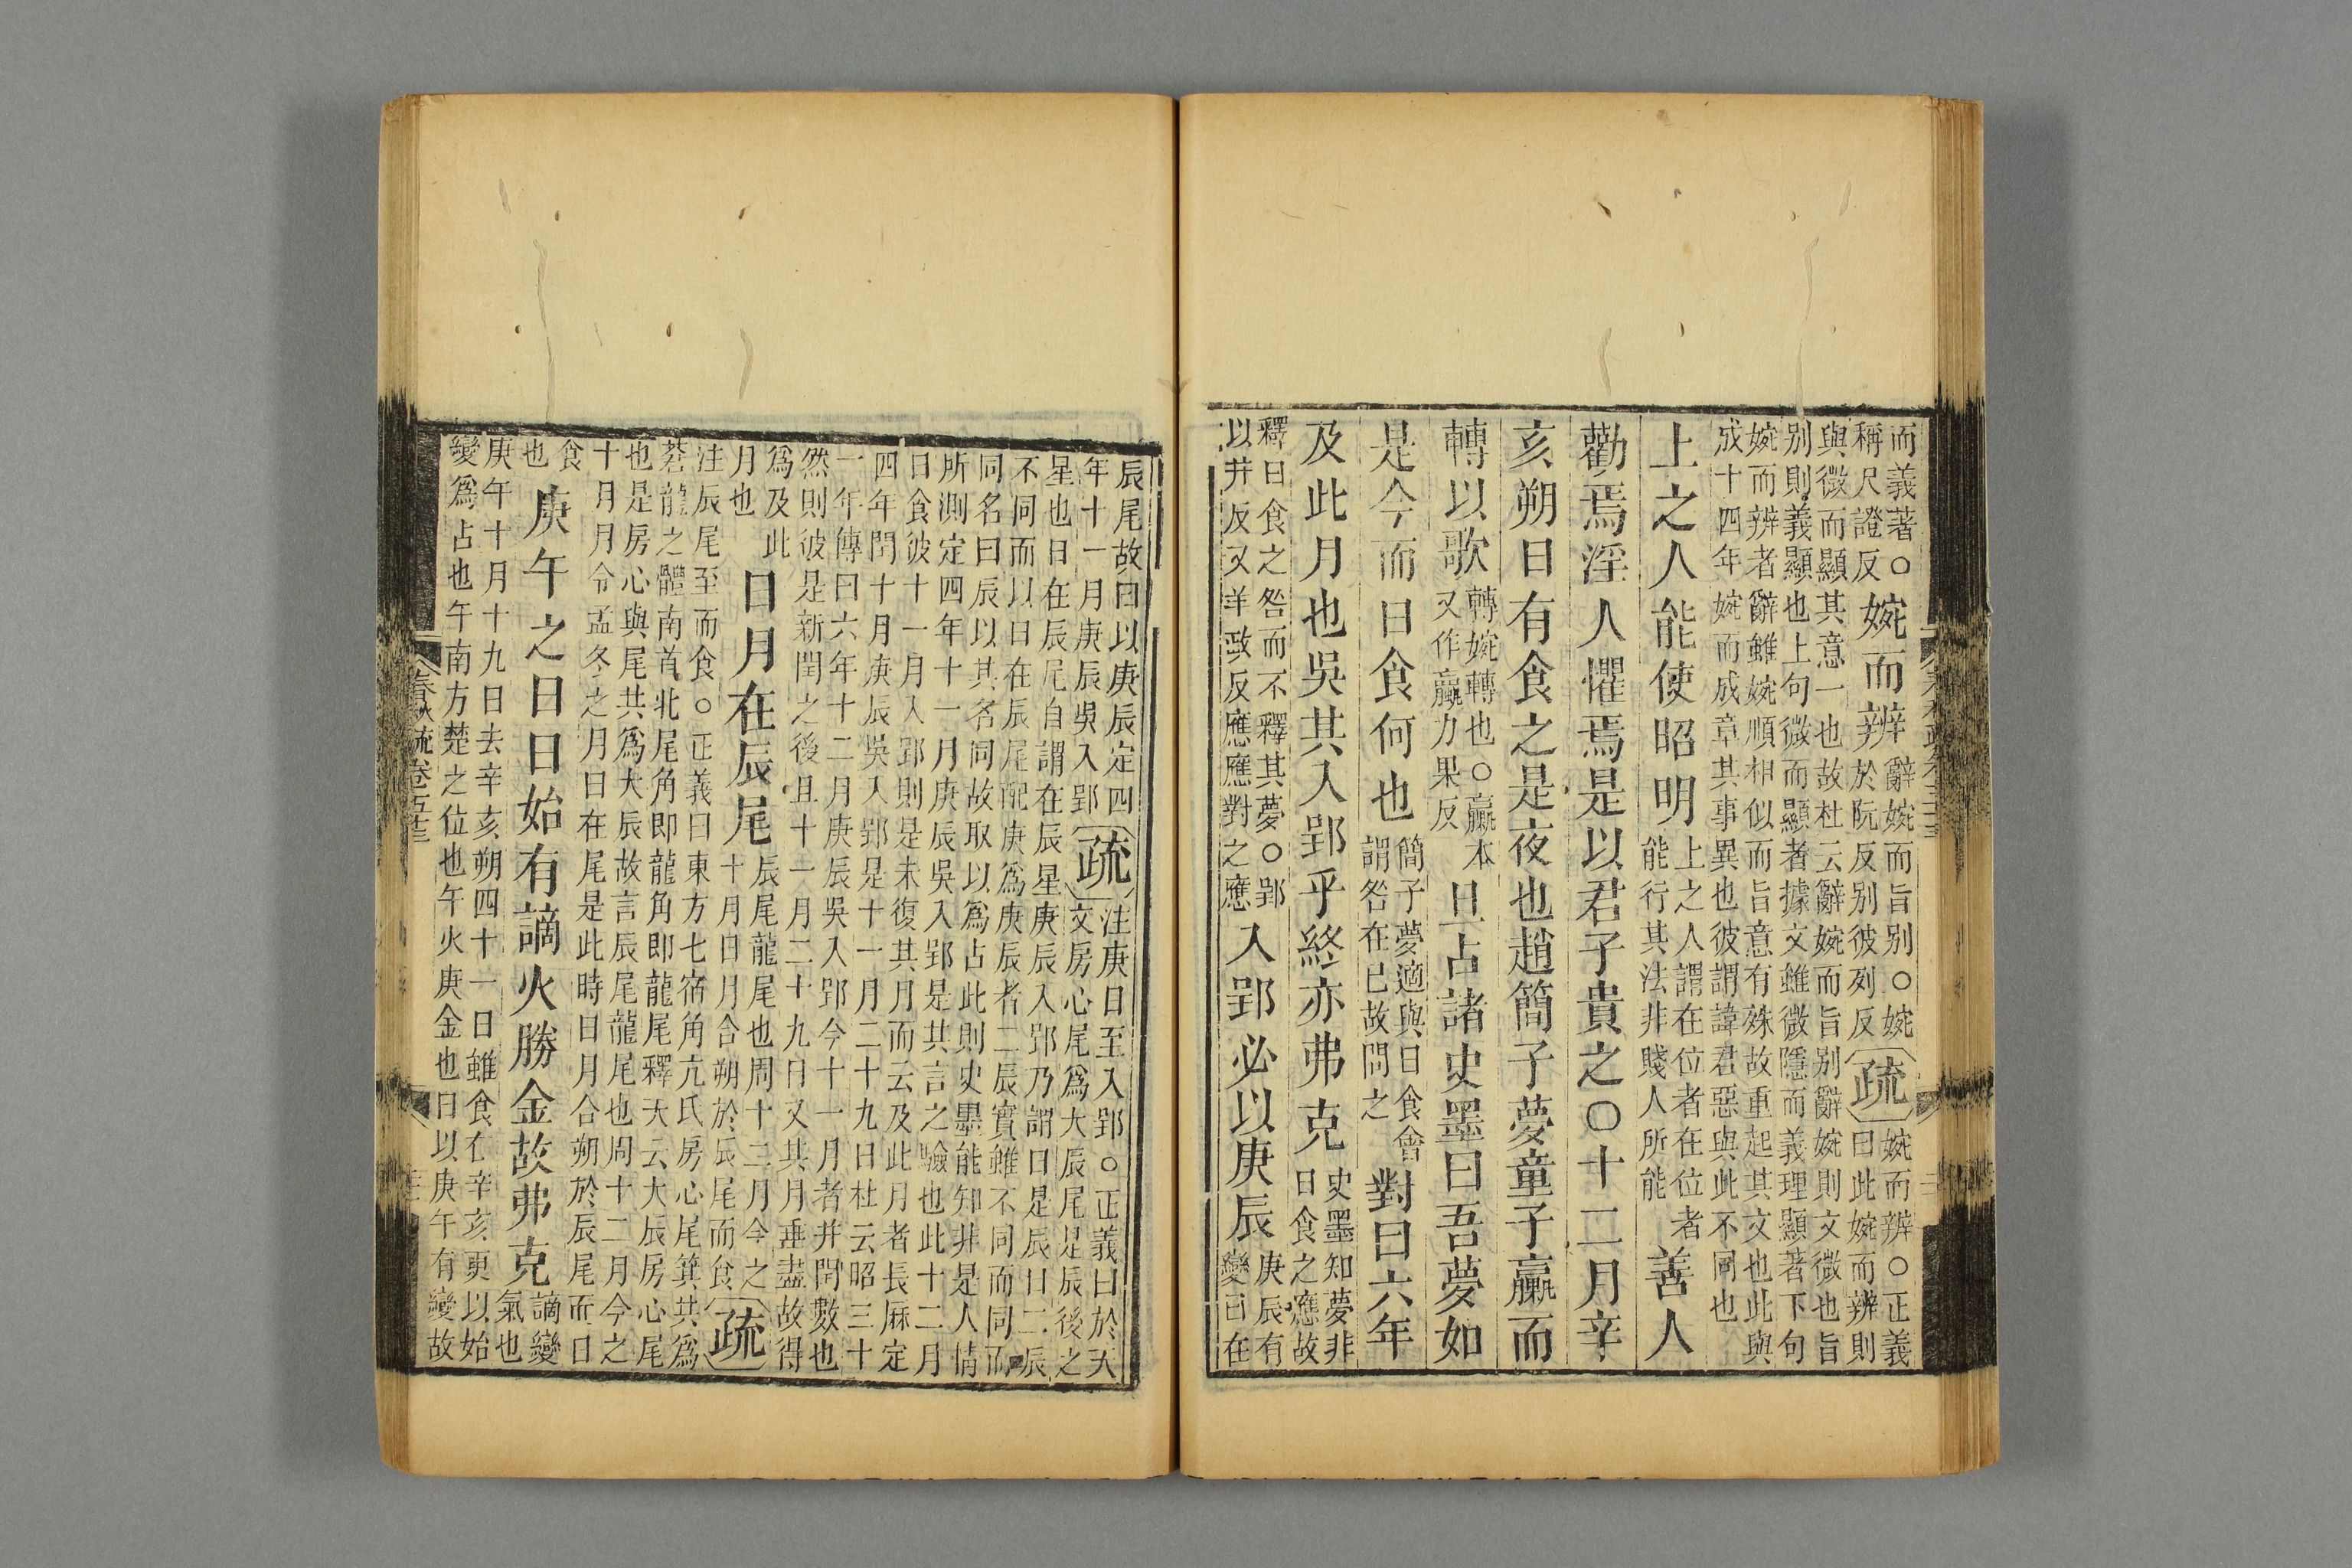 而義著○
稱尺證反
婉而辨
辭婉而旨别○婉
於阮反别彼列反
疏
婉而辨○正義
曰此婉而辨則
與微而顯其意一也故杜云辭婉而旨别辭婉則文微也旨
别則義顯也上句微而顯者據文雖微隱而義理顯著下句
婉而辨者辭雖婉順相似而旨意有殊故重起其文也此與
成十四年婉而成章其事異也彼謂諱君惡與此不同也
上之人能使昭明
上之人謂在位者在位者
能行其法非賤人所能
善人
勸焉淫人懼焉是以君子貴之○十二月辛
亥朔日有食之是夜也趙簡子夢童子臝而
轉以歌
轉婉轉也○臝本
又作臝力果反
旦占諸史墨曰吾夢如
是今而日食何也
簡子夢適與日食會
謂咎在己故問之
對曰六年
及此月也吳其入郢乎終亦弗克
史墨知夢非
日食之應故
釋日食之咎而不釋其夢○郢
以井反又羊政反應應對之應
入郢必以庚辰
庚辰有
變日在
辰尾故曰以庚辰定四
年十一月庚辰吳入郢
疏
注庚日至入郢○正義曰於天
文房心尾爲大辰尾是辰後之
星也日在辰尾自謂在辰星庚辰入郢乃謂日是辰日二辰
不同而以日在辰尾配庚爲庚辰者二辰實雖不同而同
同名曰辰以其名同故取以爲占此則史墨能知非是人情
所測定四年十一月庚辰吳入郢是其言之驗也此十二月
日食彼十一月入郢則是未復其月而云及此月者長厤定
四年閏十月庚辰吳入郢是十一月二十九日杜云昭三十
一年傳曰六年十二月庚辰吳入郢今十一月者并閏數也
然則彼是新閏之後且十一月二十九日又其月垂盡故得
爲及此
月也
日月在辰尾
辰尾龍尾也周十二月今之
十月日月合朔於辰尾而食
疏
注辰尾至而食○正義曰東方七宿角亢氐房心尾箕共爲
蒼龍之體南首北尾角即龍角尾即龍尾釋天云大辰房心尾
也是房心與尾共爲大辰故言辰尾龍尾也周十二月今之
十月月令孟冬之月日在尾是此時日月合朔於辰尾而日
食
也
庚午之日日始有謫火勝金故弗克
謫變
氣也
庚午十月十九日去辛亥朔四十一日雖食在辛亥更以始
變爲占也午南方楚之位也午火庚金也日以庚午有變故
春秋疏卷五十三